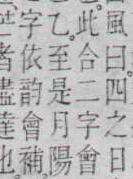 風曰四之日
此合二字會
乙至是月陽
字依韵會補
者盡蓫也